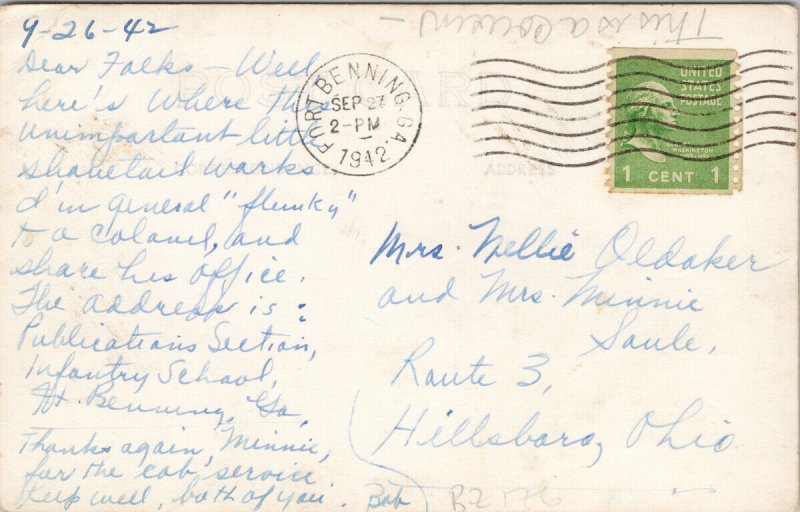 This is a cousin -
9-26-42
Dear Folks - Well
here's where this
unimportant little
shavetail works.
I'm general "flunky"
to a colonel, and
share his office.
The address is:
Publications Section,
Infantry School,
Ft. Benning, Ga.
Thanks again, Minnie,
for the cab service
Keep well, both of you. Bob
POST CARD
FORT BENNING, GA.
SEP 27
2-PM
1942
UNITED
STATES
POSTAGE
WASHINGTON
1 CENT 1
ADDRESS
Mrs. Nellie Oldaker
and Mrs. Minnie
Saule,
Route 3,
Hillsboro, Ohio
BZ176